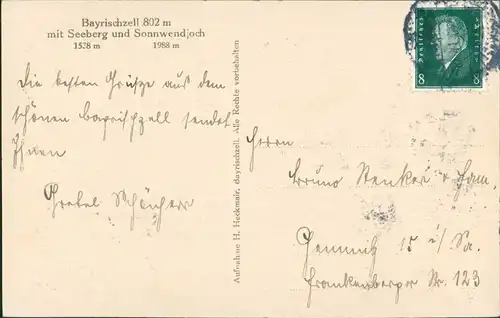 Bayrischzell 802 m
mit Seeberg und Sonnwendjoch
1538 m 1988 m
Die besten Grüße aus dem
schönen Bayrischzell sendet
Ihnen
Gretel Schönherr
Aufnahme H. Heckmair, Bayrischzell. Alle Rechte vorbehalten
Deutsches Reich
8 8
Herrn
Bruno Stenker u. Fam.
Chemnitz 15 i/Sa.
Frankenberger Str. 123